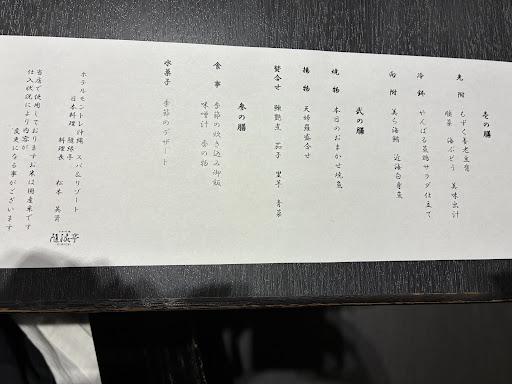 壱の膳
先附 もずく養老豆腐
順菜 海ぶどう 美味出汁
冷鉢 やんばる蒸鶏サラダ仕立て
向附 美ら海鮪 近海白身魚
弐の膳
焼物 本日のおまかせ焼魚
揚物 天婦羅盛合せ
焚合せ 豚艶煮 茄子 里芋 青菜
参の膳
食事 季節の炊き込み御飯
味噌汁 香の物
水菓子 季節のデザート
ホテルモントレ沖縄 スパ&リゾート
日本料理 隨縁亭
料理長 松本 美貴
当店で使用しておりますお米は国産米です
仕入状況により内容が変更になる事がございます
隨縁亭